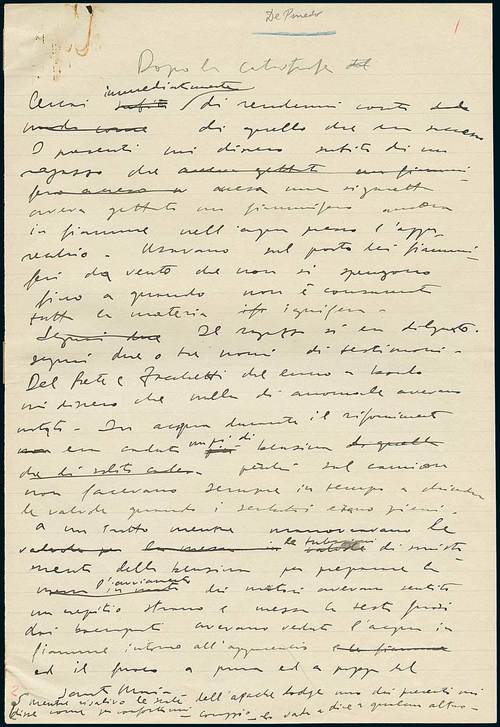 De Pinedo
1
Dopo la catastrofe del
Cercai immediatamente subito di rendermi conto del
modo come di quello che era successo
I presenti mi dissero subito di un
ragazzo che aveva gettato un fiammi-
fero acceso acceso una sigaretta
aveva gettato un fiammifero ancora
in fiamme nell'acqua presso l'appa-
recchio. Usavano sul posto dei fiammi-
feri da vento che non si spengono
fino a quando non è consumata
tutta la materia ignifera.
Seguii due Il ragazzo si era dileguato.
seguii due o tre nomi di testimoni.
Del Prete e Zacchetti che erano a bordo
mi dissero che nulla di anormale avevano
notato. In acqua durante il rifornimento
era caduta un po' di benzina di quella
che di solito cade. perché sul camion
non facevano sempre in tempo a chiudere
le valvole quando i serbatoi erano pieni.
A un tratto mentre manovravano le
valvole per la messa in le tubazioni di smista-
mento della benzina per preparare la
messa in moto l'avviamento dei motori avevano sentito
un crepitio strano e messa la testa fuori
dai boccaporti avevano veduto l'acqua in
fiamme intorno all'apparecchio e le fiamme
ed il fuoco a prua ed a poppa del
Santa Maria
mentre risalivo le scale dell'apache lodge uno dei presenti mi
disse come